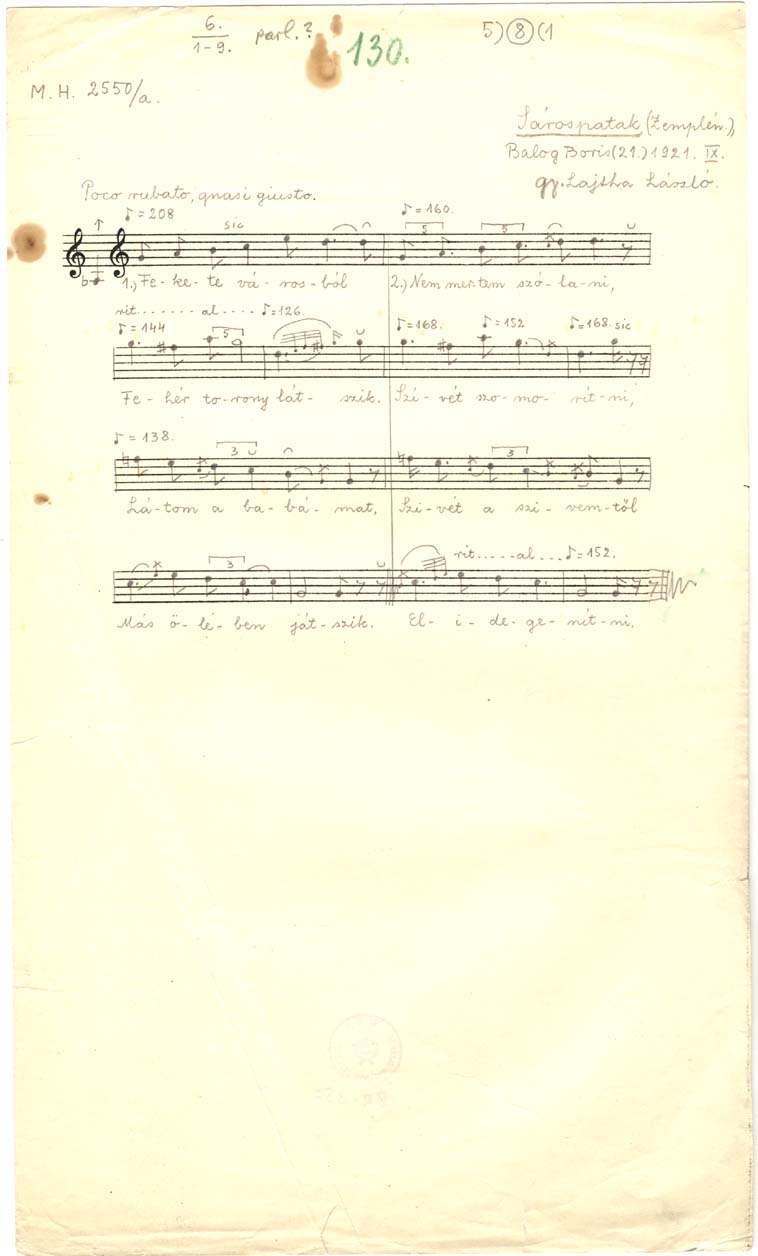 6.
1-9.
parl.?
130.
5) 8 (1
M. H. 2550/a.
Sárospatak, (Zemplén.),
Balog Boris (21.) 1921. IX.
gy. Lajtha László.
Poco rubato, quasi giusto.
♪ = 208 sic ♪ = 160.
5 5
1.) Fe- ke- te vá- ros- ból 2.) Nem mer-tem szó- la- ni,
rit........ al .... ♪ = 126.
♪ = 144 5 ♪ = 168. ♪ = 152 ♪ = 168. sic
Fe- hér to- rony lát- szik. Szi- vét szo- mo- rít- ni,
♪ = 138.
3 3
Lá- tom a ba- bá- mat, Szi- vét a szi- vem- től
3 rit.....al... ♪ = 152.
Más ö- lé- ben ját- szik. El- i- de- ge- nít- ni.